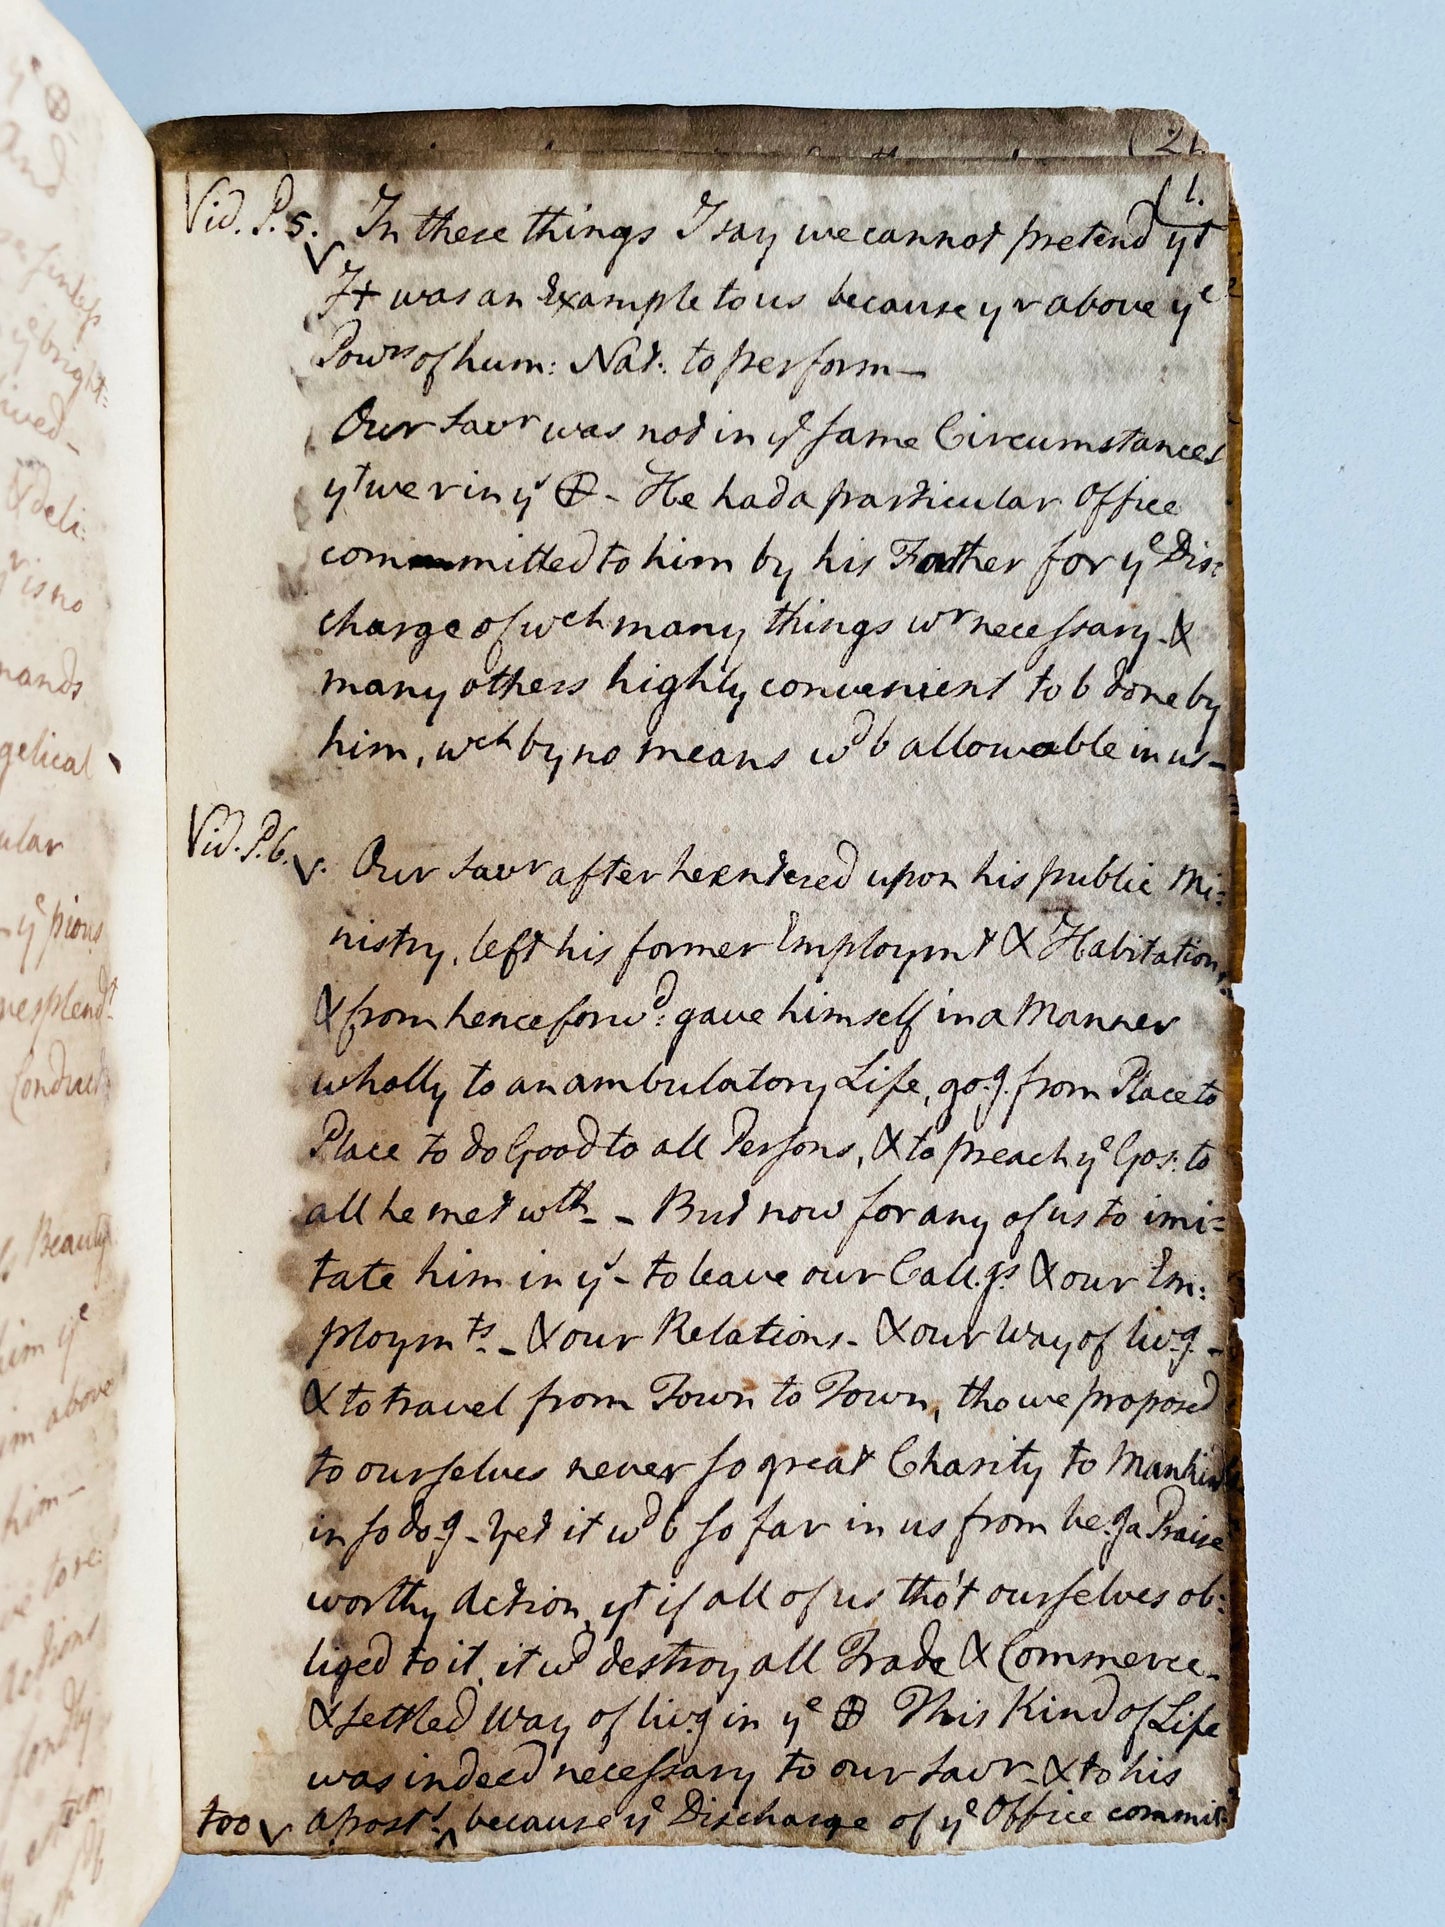 (21
(1.
Vid. P. 5. In these things I say we cannot pretend yt
It was an Example to us because y r above ye
Powrs of hum: Nat: to perform –
Our Savr was not in ye same Circumstances
yt we r in ys ⊕ - He had a particular Office
committed to him by his Father for ye Dis:
charge of wch many things wr necessary - &
many others highly convenient to b done by
him, wch by no means wd b allowable in us –
Vid. P. 6. Our Savr after he entered upon his public Mi:
nistry, left his former Employmt & Habitation
& from henceforwd: gave himself in a Manner
wholly to an ambulatory Life, go.g. from Place to
Place to do Good to all Persons, & to preach ye Gos: to
all he met wth - - But now for any of us to imi=
tate him in ys - to leave our Call.gs & our Em:
ploymts. - & our Relations - & our Way of liv.g -
& to travel from Town to Town, tho we proposed
to ourselves never so great Charity to Mankind
in so do.g - Yet it wd b so far in us from be.g a Praise
worthy Action, yt if all of us tho't ourselves ob:
liged to it, it wd destroy all Trade & Commerce -
& settled Way of liv.g in ye ⊕ This Kind of Life
was indeed necessary to our Savr - & to his
too apost.s because ye Discharge of ye Office commit:
and
bright:
lived -
& deli:
is no
mands
gelical
ular
ye pious
Conduct
Beauty
him ye
above
him -
Actions